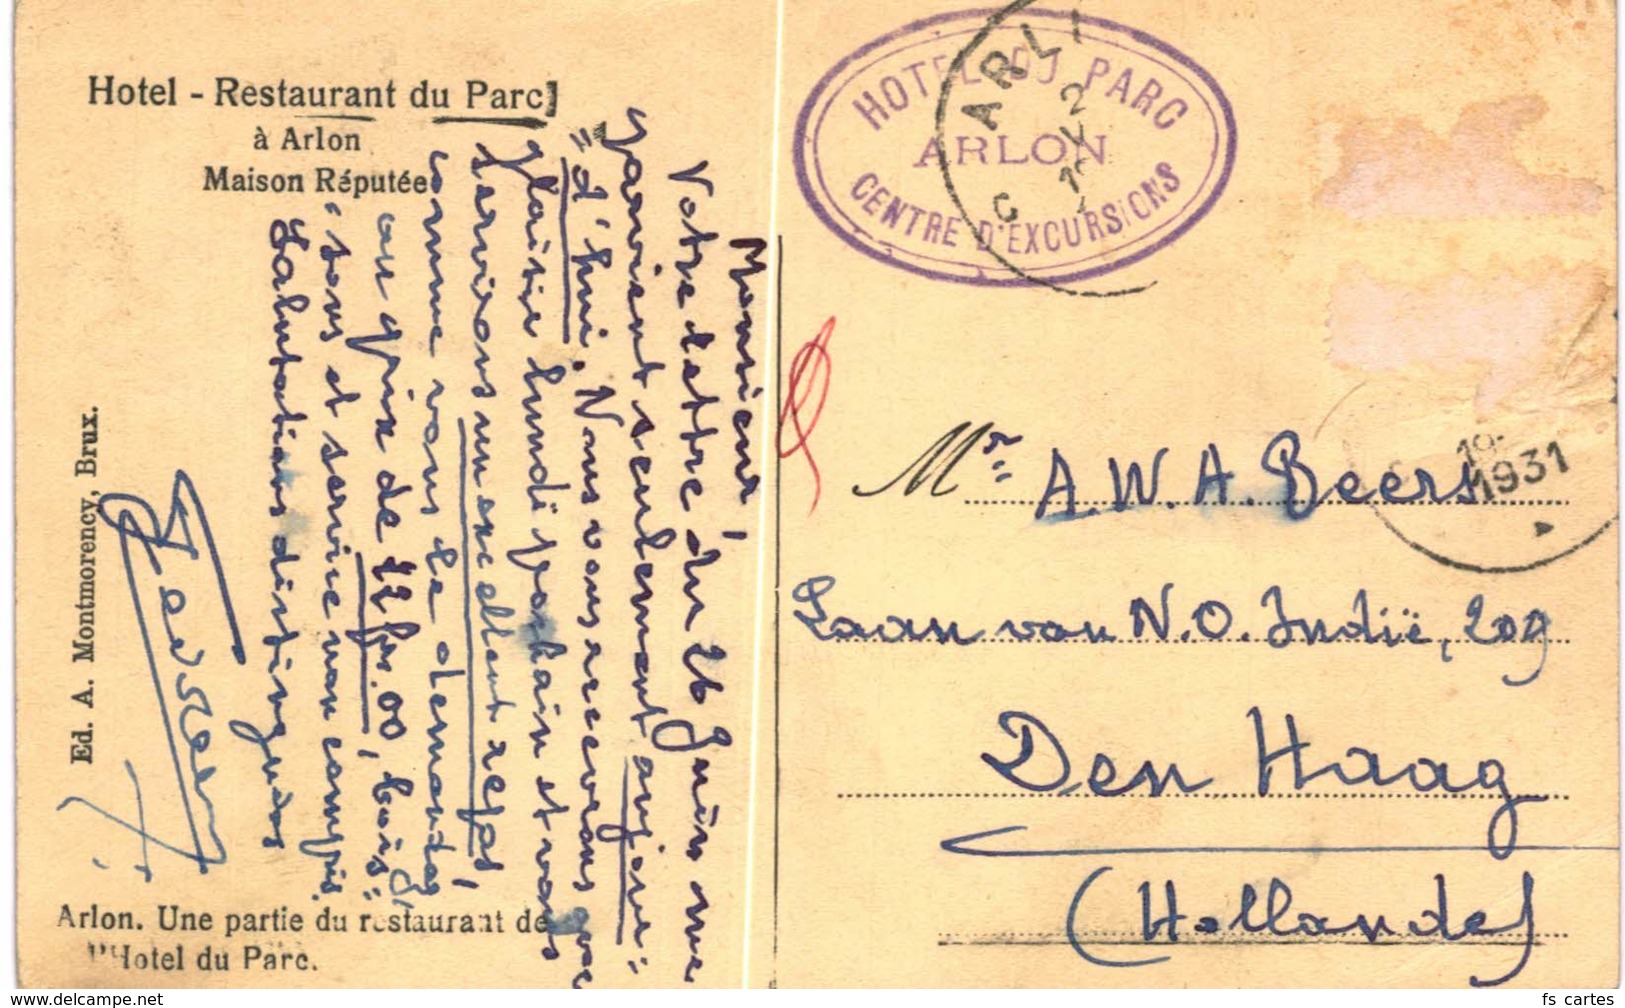 Hotel - Restaurant du Parc
à Arlon
Maison Réputée
Monsieur,
Votre lettre du 26 Juin me
parvient seulement aujour=
"d'hui. Nous vous recevrons avec
plaisir lundi prochain et vous
servirons un excellent repas,
comme vous le demandez
au prix de 22 frs. 00, bois=
sons et service non compris.
Salutations distinguées
Ed. A. Montmorency, Brux.
Arlon. Une partie du restaurant de
l'Hotel du Parc.
HOTEL DU PARC
ARLON
CENTRE D'EXCURSIONS
ARL
Mr. A. W. A. Beers
1931
Laan van N. O. Indië, 209
Den Haag
(Hollande)
fs cartes